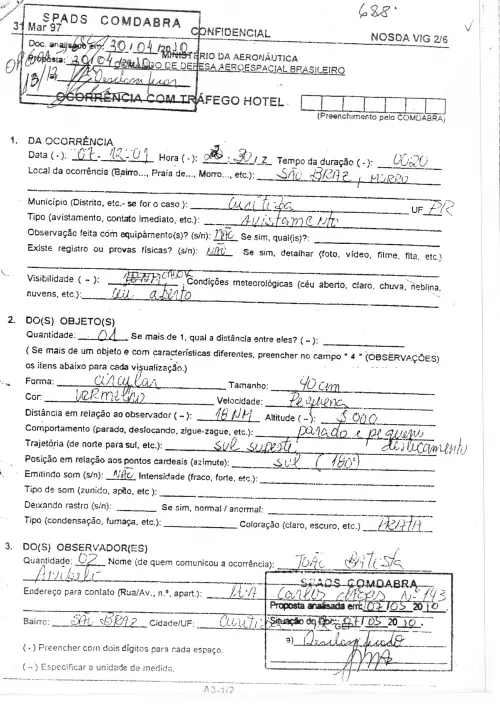 688
31 Mar 97
SPADS COMDABRA
CONFIDENCIAL
NOSDA VIG 2/6
Doc. analisado em: 30/04/2010
MINISTÉRIO DA AERONÁUTICA
Proposta: 30/04
DE DEFESA AEROESPACIAL BRASILEIRO
OCORRÊNCIA COM TRÁFEGO HOTEL
(Preenchimento pelo COMDABRA)
1. DA OCORRÊNCIA
Data (·): 07.12.01 Hora (·): 30, Z Tempo da duração (·): 0020
Local da ocorrência (Bairro..., Praia de..., Morro..., etc.): SÃO BRAZ, MORRO
Município (Distrito, etc.- se for o caso): Curitiba UF PR
Tipo (avistamento, contato imediato, etc.): Avistamento
Observação feita com equipamento(s)? (s/n): NÃO Se sim, qual(is)?:
Existe registro ou provas físicas? (s/n): NÃO Se sim, detalhar (foto, vídeo, filme, fita, etc.)
Visibilidade (~): Condições meteorológicas (céu aberto, claro, chuva, neblina,
nuvens, etc.): céu aberto
2. DO(S) OBJETO(S)
Quantidade: 01 Se mais de 1, qual a distância entre eles? (~):
(Se mais de um objeto e com características diferentes, preencher no campo "4" (OBSERVAÇÕES)
os itens abaixo para cada visualização.)
Forma: circular Tamanho: 40 cm
Cor: vermelho Velocidade: Pequena
Distância em relação ao observador (~): 18 NM Altitude (~): 5000
Comportamento (parado, deslocando, zigue-zague, etc.): parado e pequeno deslocamento
Trajetória (de norte para sul, etc.): sul
Posição em relação aos pontos cardeais (azimute): sul (180°)
Emitindo som (s/n): NÃO Intensidade (fraco, forte, etc.):
Tipo de som (zunido, apito, etc):
Deixando rastro (s/n): Se sim, normal / anormal:
Tipo (condensação, fumaça, etc.): Coloração (claro, escuro, etc.) PRATA
3. DO(S) OBSERVADOR(ES)
Quantidade: 02 Nome (de quem comunicou a ocorrência): João Batista
Endereço para contato (Rua/Av., n.º, apart.): RUA Carlos Nº 143
SPADS COMDABRA
Proposta analisada em: 07/05 2010
Bairro: SÃO BRAZ Cidade/UF: Curitiba
Situação do Doc: 07/05 2010.
a) Desclassificado
(·) Preencher com dois dígitos para cada espaço.
(~) Especificar a unidade de medida.
A3-1/2